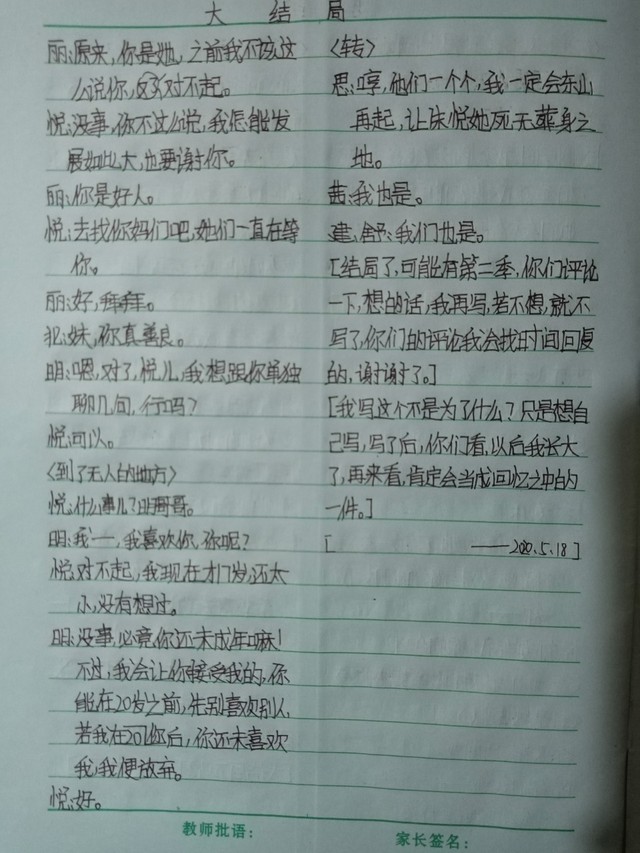 大结局
丽:原来,你是她,之前我不该这
么说你,对不起。
悦:没事,你不这么说,我怎能发
展如此大,也要谢你。
丽:你是好人。
悦:去找你妈们吧,她们一直在等
你。
丽:好,拜拜。
犯:妹,你真善良。
明:嗯,对了,悦儿,我想跟你单独
聊几句,行吗?
悦:可以。
〈到了无人的地方〉
悦:什么事儿?明哥哥。
明:我一,我喜欢你,你呢?
悦:对不起,我现在才门岁,还太
小,没有想过。
明:没事,必竟你还未成年嘛!
不过,我会让你接受我的,你
能在20岁之前,先别喜欢别人,
若我在20你后,你还未喜欢
我,我便放弃。
悦:好。
〈转〉
思:哼,他们一个个,我一定会东山
再起,让朱悦她死无葬身之
地。
茜:我也是。
建,舒:我们也是。
[结局了,可能有第二季,你们评论
一下,想的话,我再写,若不想,就不
写了,你们的评论我会找时间回复
的,谢谢了。]
[我写这个不是为了什么?只是想自
己写,写了后,你们看,以后我长大
了,再来看,肯定会当成回忆之中的
一件。]
[ ——2020.5.18]
教师批语: 家长签名: